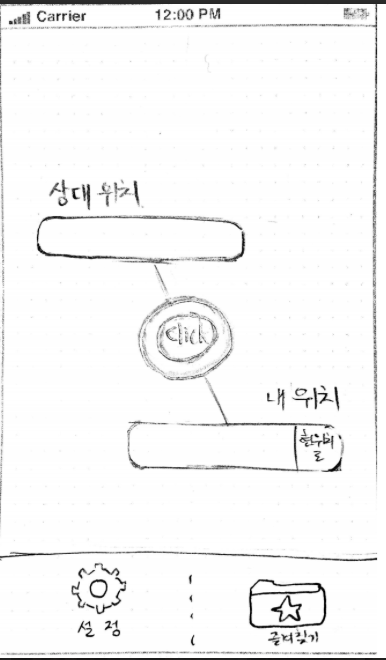 Carrier 12:00 PM
상대 위치
Click
내 위치
현위치
로
설정
즐겨찾기